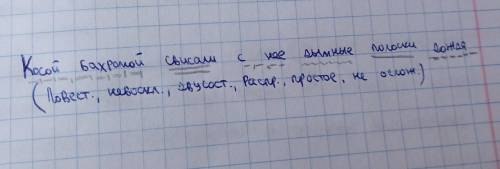 Косой бахромой свисали с нее дымные полоски дождя
(Повест., невоскл., двусост., распр., простое, не ослож.)